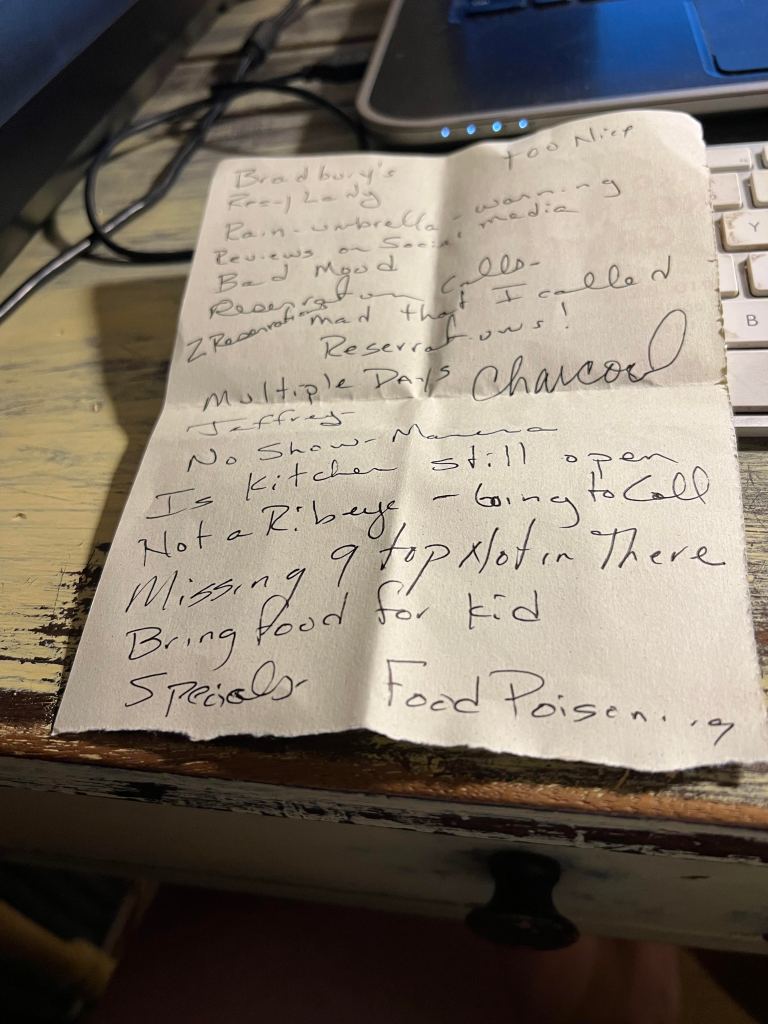 too Nice
Bradbury's
Lady
Rain-umbrella-warning
Reviews on Social media
Bad Mood
Reservation Calls-
2 Reservations mad that I called
Reservations!
Multiple Days Charcoal
Jeffrey-
No Show-
Is Kitchen still open
Not a Ribeye - Going to Call
Missing 9 top Not in There
Bring food for kid
Specials- Food Poisening
Y
B